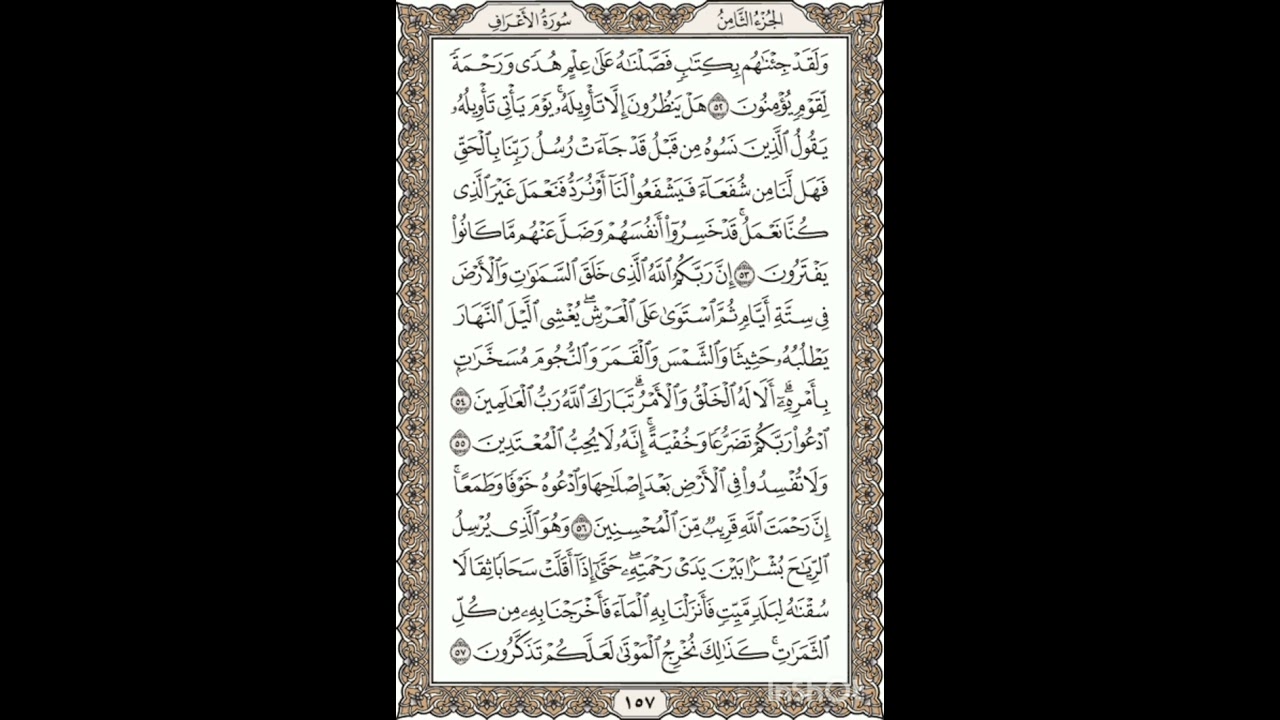 الجُزْءُ الثَّامِنُ
سُورَةُ الأَعْرَافِ
وَلَقَدْ جِئْنَٰهُم بِكِتَٰبٖ فَصَّلْنَٰهُ عَلَىٰ عِلْمٍ هُدٗى وَرَحْمَةٗ
لِّقَوْمٖ يُؤْمِنُونَ ٥٢ هَلْ يَنظُرُونَ إِلَّا تَأْوِيلَهُۥۚ يَوْمَ يَأْتِي تَأْوِيلُهُۥ
يَقُولُ ٱلَّذِينَ نَسُوهُ مِن قَبْلُ قَدْ جَآءَتْ رُسُلُ رَبِّنَا بِٱلْحَقِّ
فَهَل لَّنَا مِن شُفَعَآءَ فَيَشْفَعُوا۟ لَنَآ أَوْ نُرَدُّ فَنَعْمَلَ غَيْرَ ٱلَّذِي
كُنَّا نَعْمَلُۚ قَدْ خَسِرُوٓا۟ أَنفُسَهُمْ وَضَلَّ عَنْهُم مَّا كَانُوا۟
يَفْتَرُونَ ٥٣ إِنَّ رَبَّكُمُ ٱللَّهُ ٱلَّذِي خَلَقَ ٱلسَّمَٰوَٰتِ وَٱلْأَرْضَ
فِي سِتَّةِ أَيَّامٖ ثُمَّ ٱسْتَوَىٰ عَلَى ٱلْعَرْشِۖ يُغْشِي ٱلَّيْلَ ٱلنَّهَارَ
يَطْلُبُهُۥ حَثِيثٗا وَٱلشَّمْسَ وَٱلْقَمَرَ وَٱلنُّجُومَ مُسَخَّرَٰتِۭ
بِأَمْرِهِۦٓۗ أَلَا لَهُ ٱلْخَلْقُ وَٱلْأَمْرُۗ تَبَارَكَ ٱللَّهُ رَبُّ ٱلْعَٰلَمِينَ ٥٤
ٱدْعُوا۟ رَبَّكُمْ تَضَرُّعٗا وَخُفْيَةًۚ إِنَّهُۥ لَا يُحِبُّ ٱلْمُعْتَدِينَ ٥٥
وَلَا تُفْسِدُوا۟ فِي ٱلْأَرْضِ بَعْدَ إِصْلَٰحِهَا وَٱدْعُوهُ خَوْفٗا وَطَمَعًاۚ
إِنَّ رَحْمَتَ ٱللَّهِ قَرِيبٞ مِّنَ ٱلْمُحْسِنِينَ ٥٦ وَهُوَ ٱلَّذِي يُرْسِلُ
ٱلرِّيَٰحَ بُشْرَۢا بَيْنَ يَدَيْ رَحْمَتِهِۦۖ حَتَّىٰٓ إِذَآ أَقَلَّتْ سَحَابٗا ثِقَالٗا
سُقْنَٰهُ لِبَلَدٖ مَّيِّتٖ فَأَنزَلْنَا بِهِ ٱلْمَآءَ فَأَخْرَجْنَا بِهِۦ مِن كُلِّ
ٱلثَّمَرَٰتِۚ كَذَٰلِكَ نُخْرِجُ ٱلْمَوْتَىٰ لَعَلَّكُمْ تَذَكَّرُونَ ٥٧
١٥٧
InShOt